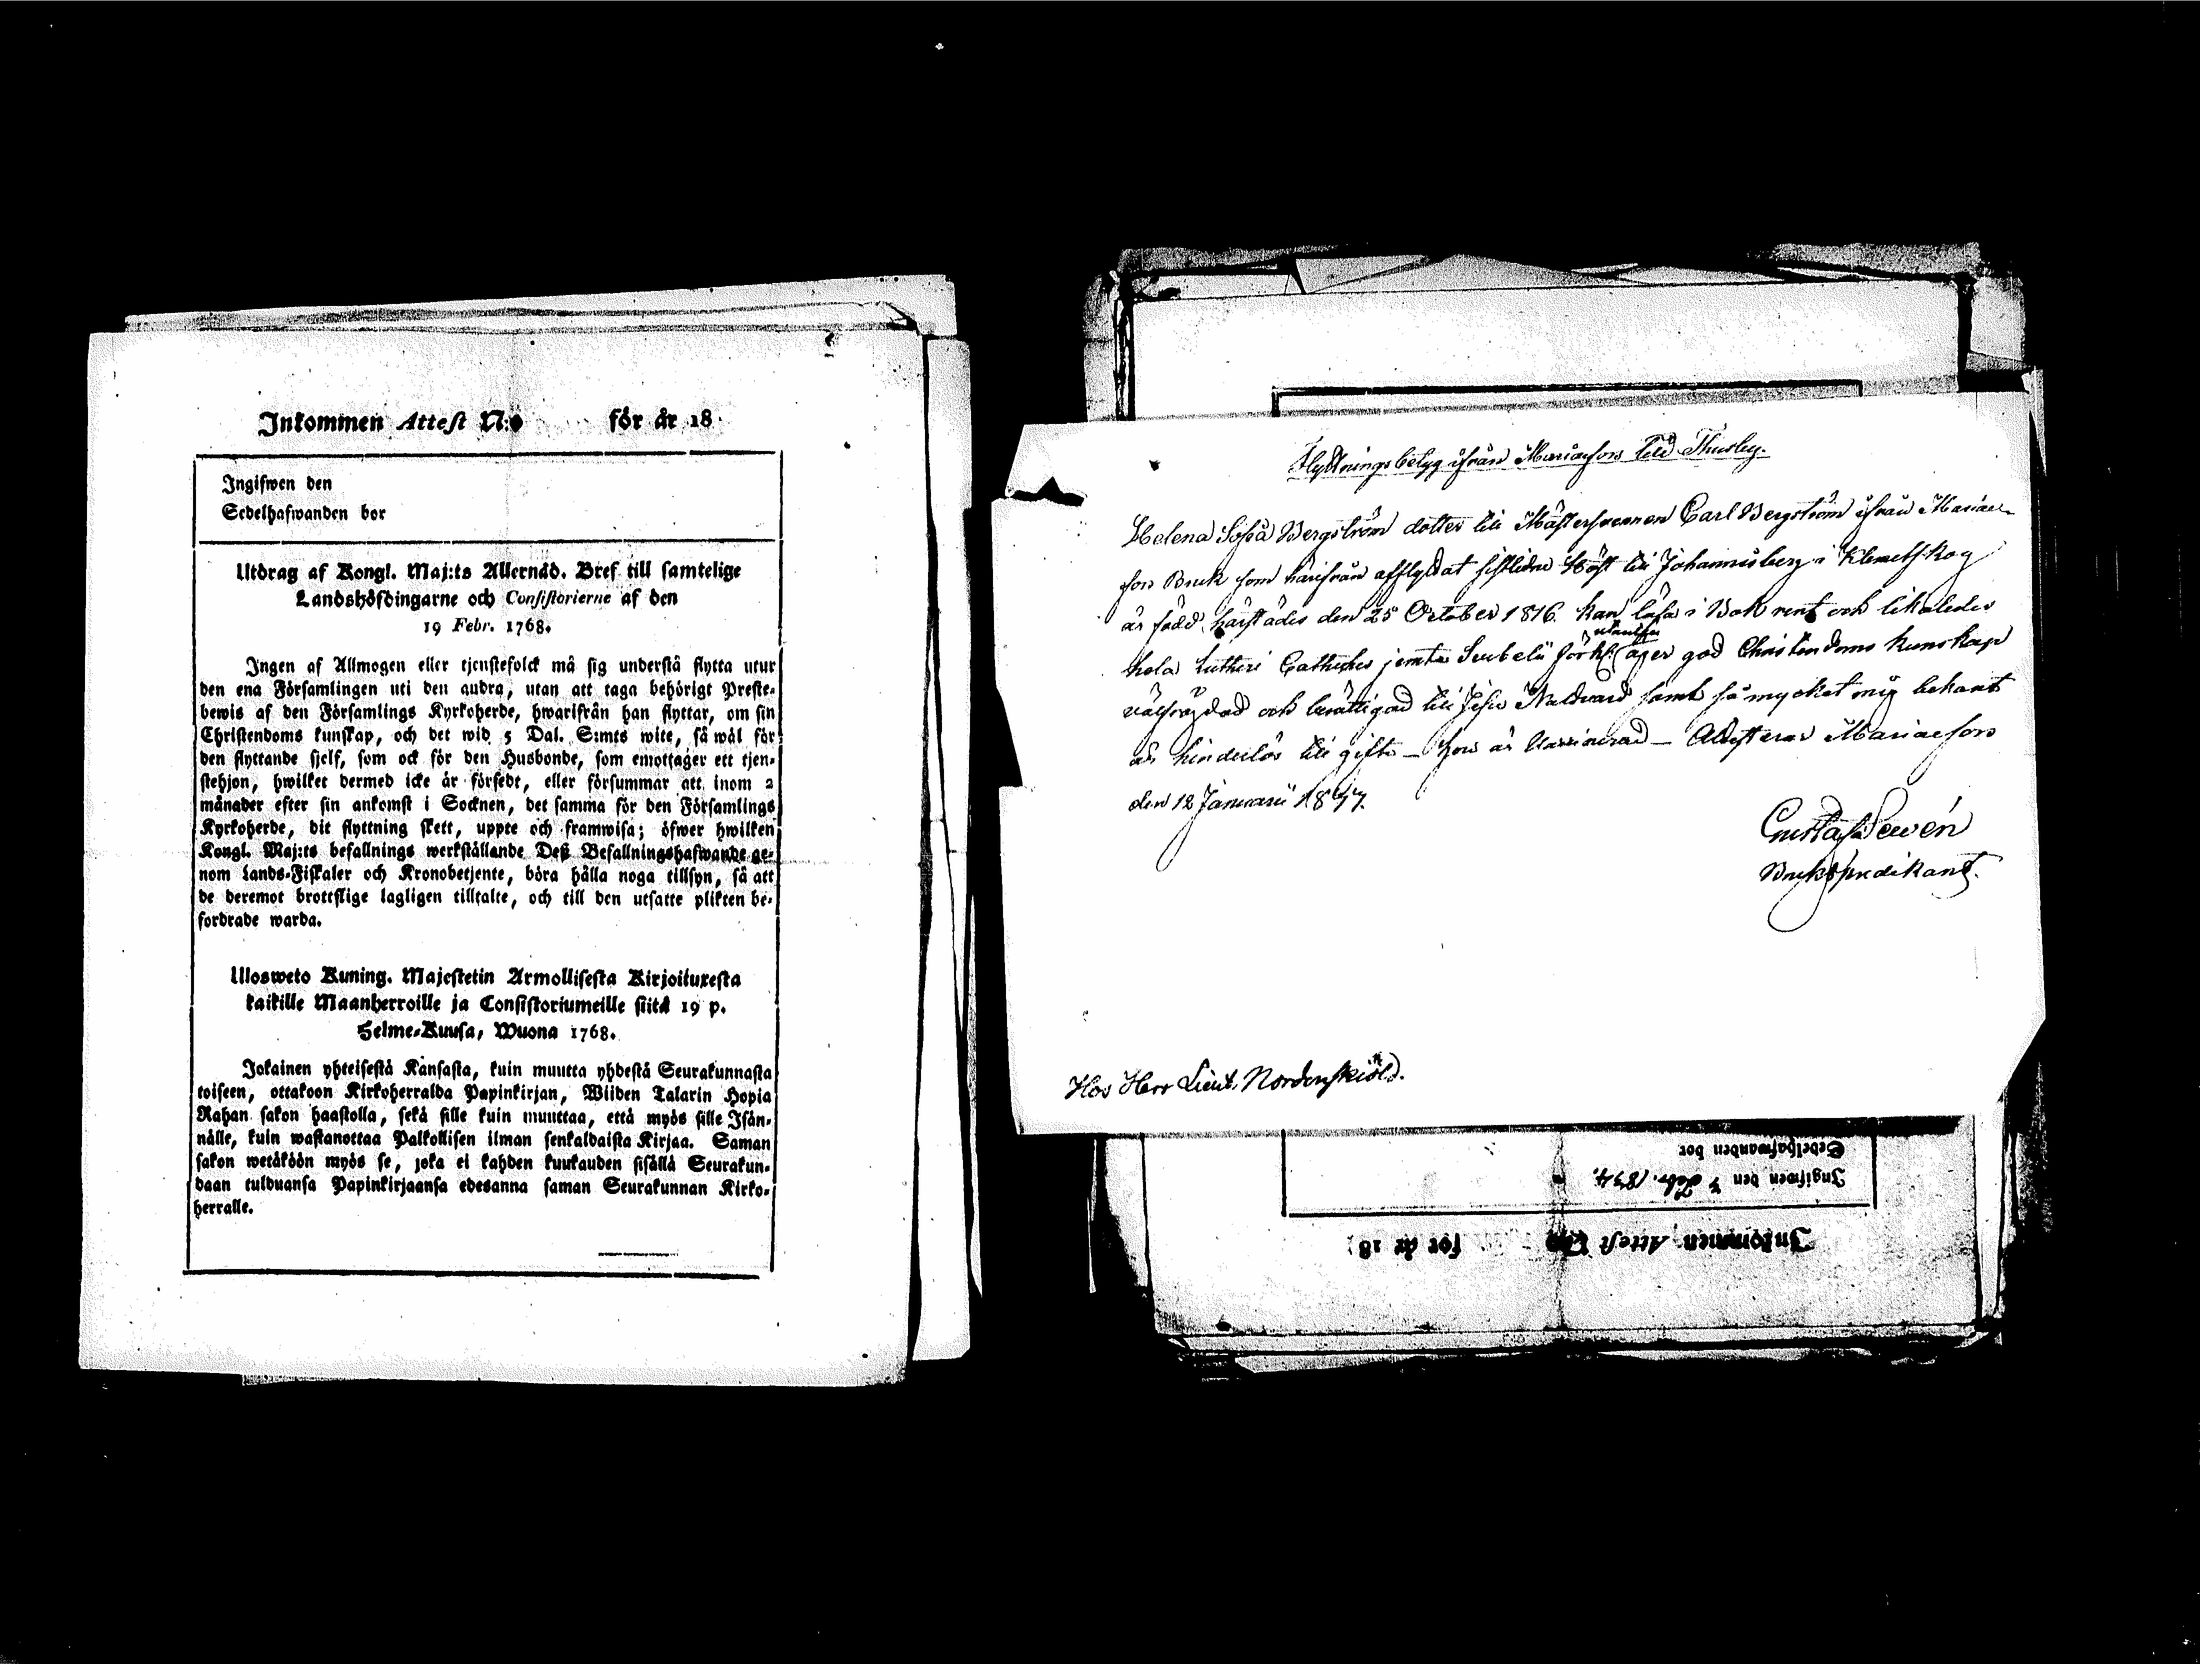 Inkommen Attest N:o för år 18
Ingifwen den
Sedelhafwanden bor
Utdrag af Kongl. Maj:ts Allernåd. Bref till samtelige
Landshöfdingarne och Consistorierne af den
19 Febr. 1768.
Ingen af Allmogen eller tjenstefolck må sig understå flytta utur
den ena Församlingen uti den audra, utan att taga behörigt Preste-
bewis af den Församlings Kyrkoherde, hwarifrån han flyttar, om sin
Christendoms kunskap, och det wid 5 Dal. S:mts wite, så wäl för
den flyttande sjelf, som ock för den Husbonde, som emottager ett tjen-
stehjon, hwilket dermed icke är försedt, eller försummar att inom 2
månader efter sin ankomst i Socknen, det samma för den Församlings
Kyrkoherde, dit flyttning skett, uppte och framwisa; öfwer hwilken
Kongl. Maj:ts befallnings werkställande Deß Befallningshafwande ge-
nom Lands-Fiskaler och Kronobetjente, böra hålla noga tillsyn, så att
de deremot brottslige lagligen tilltalte, och till den utsatte plikten be-
fordrade warda.
Ulosweto Kuning. Majestetin Armollisesta Kirjoituxesta
kaikille Maanherroille ja Consistoriumeille siitä 19 p.
Helme-Kuusa, Wuona 1768.
Jokainen yhteisestä Kansasta, kuin muutta yhdestä Seurakunnasta
toiseen, ottakoon Kirkoherralda Papinkirjan, Wiiden Talarin Hopia
Rahan sakon haastolla, sekä sille kuin muuttaa, että myös sille Isän-
nälle, kuin wastanottaa Palkollisen ilman senkaldaista Kirjaa. Saman
sakon wetäköön myös se, joka ei kahden kuukauden sisällä Seurakun-
daan tulduansa Papinkirjaansa edesanna saman Seurakunnan Kirko-
herralle.
Flyttningsbetyg ifrån Mariaefors till Thusby.
Helena Sofia Bergström dotter till Mästersvennen Carl Bergström ifrån Mariae-
fors Bruk som härifrån afflyttat sistledne Höst till Johannisberg i Klemetskog
är född härstädes den 25 October 1816. kan läsa i Bok rent och likaledes
hela Lutheri Catheches jemte Svebelii förkl. äger god Christendoms kunskap
välfräjdad och berättigad till Jesu Nattvard samt så mycket mig bekant
är hinderlös till gifte – hon är Vaxinerad – Attesterar Mariaefors
den 12 Januarii 18
Gustaf Sewén
Brukspredikant.
Hos Herr Lieut. Nordenskiöld.
Sedelhafwanden bor
Ingifwen den 3 Febr. 1834.
Inkommen Attest N:o för år 18